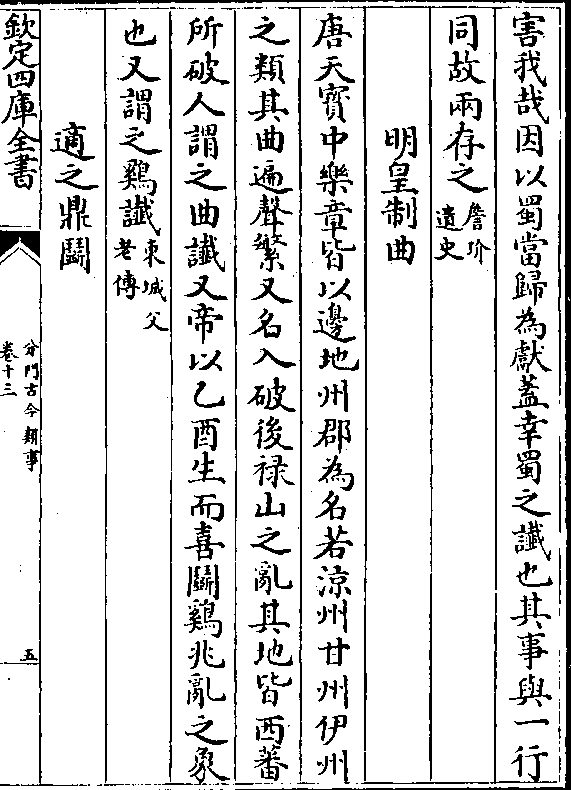 害我哉因以蜀當歸為獻蓋幸蜀之讖也其事與一行
同故兩存之詹玠遺史
明皇制曲
唐天寶中樂章皆以邊地州郡為名若涼州甘州伊州
之類其曲遍聲繁又名入破後祿山之亂其地皆西蕃
所破人謂之曲讖又帝以乙酉生而喜鬭鷄兆亂之象
也又謂之鷄讖東城父老傳
適之鼎鬭
欽定四庫全書
分門古今類事
卷十三
五